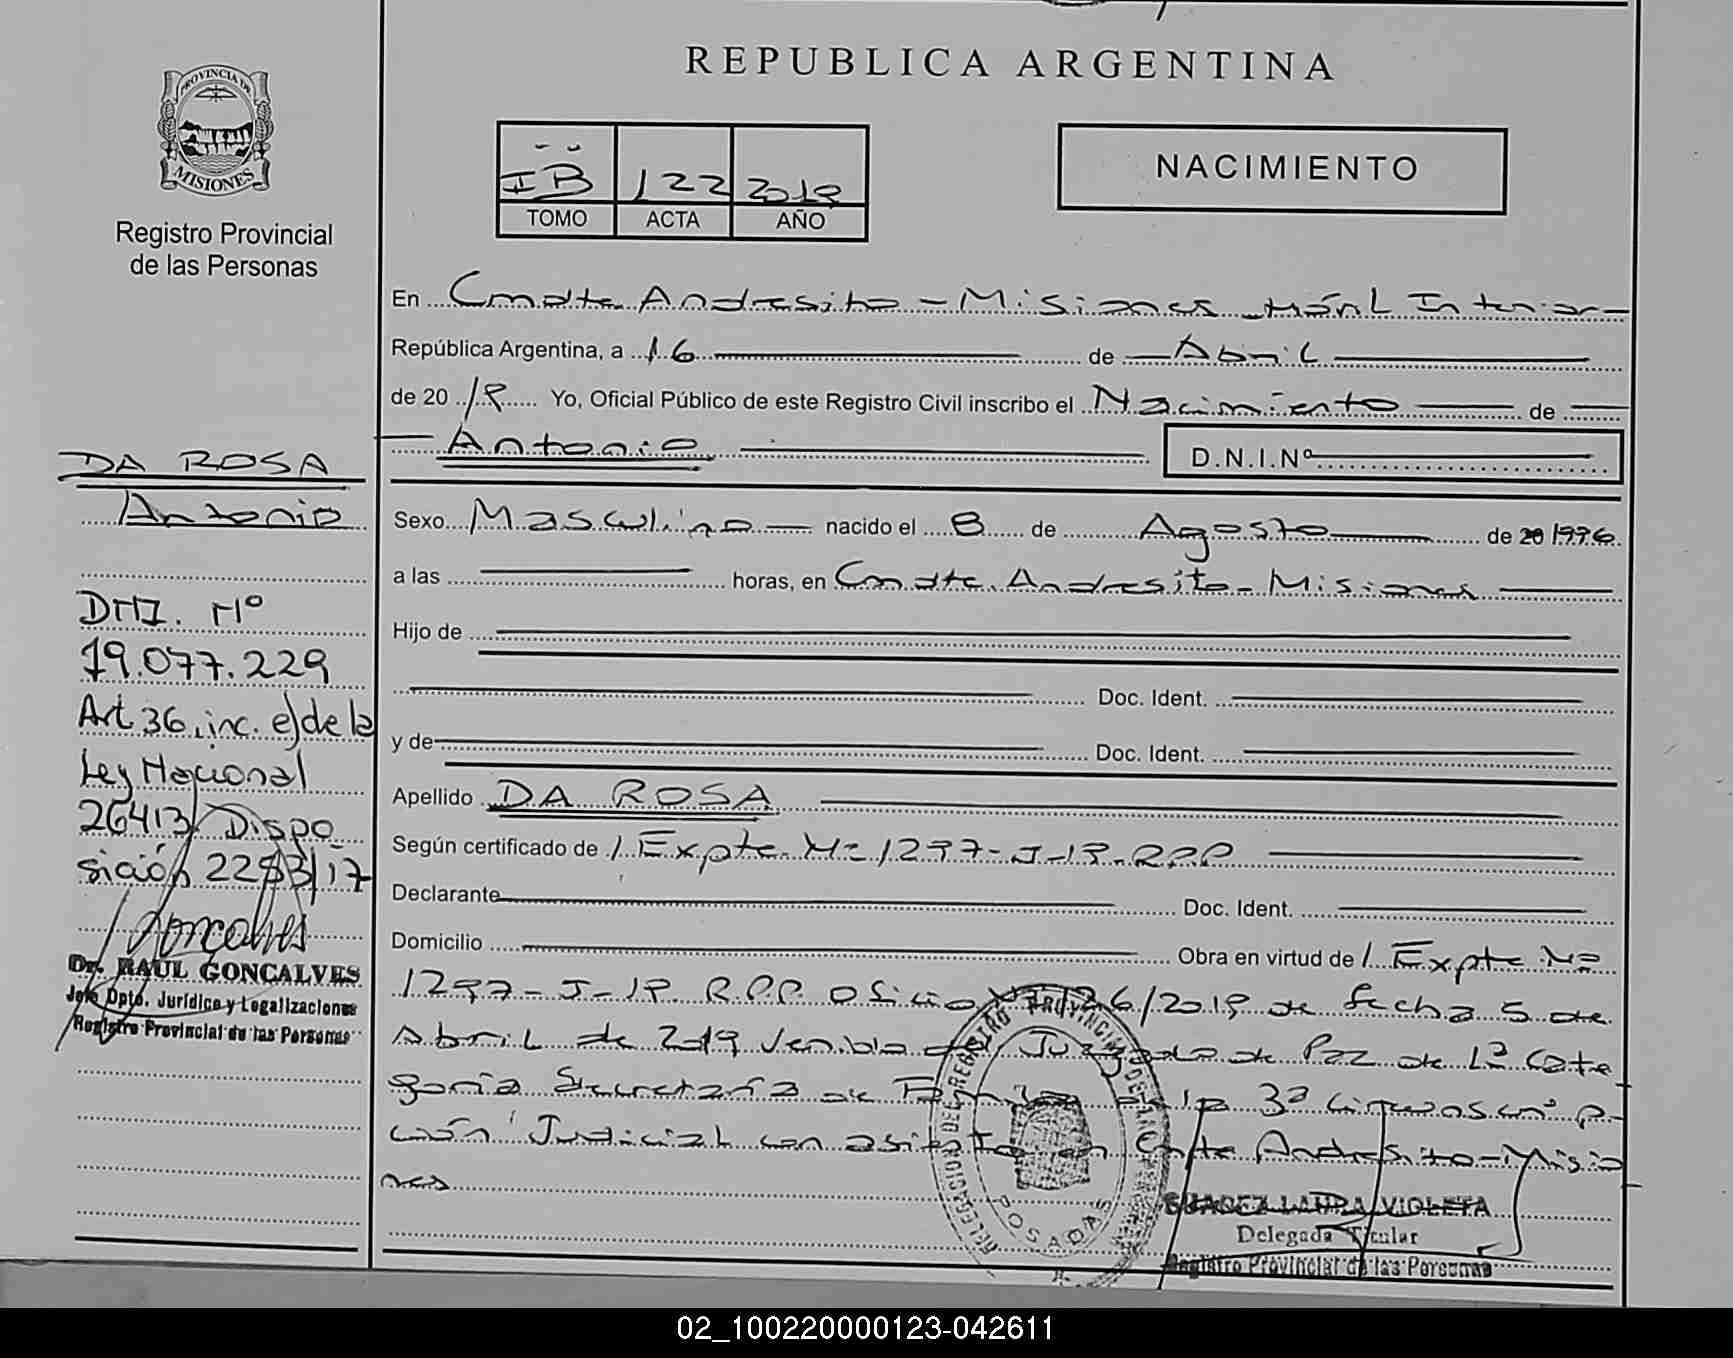 REPUBLICA ARGENTINA
PROVINCIA DE
MISIONES
Registro Provincial
de las Personas
IB 122 2019
TOMO ACTA AÑO
NACIMIENTO
En Cmdte. Andresito - Misiones Móvil Interior
República Argentina, a 16 de Abril
de 20 19 Yo, Oficial Público de este Registro Civil inscribo el Nacimiento de
Antonio D.N.I.Nº
Sexo Masculino nacido el 8 de Agosto de 20 1996
a las horas, en Cmdte. Andresito - Misiones
Hijo de
Doc. Ident.
y de Doc. Ident.
Apellido DA ROSA
Según certificado de / Expte. Nº 1297-J-19-RPP
Declarante Doc. Ident.
Domicilio Obra en virtud de / Expte Nº
1297-J-19. R.P.P. Oficio 126/2019 de fecha 5 de
Abril de 2019 venido del Juzgado de Paz de 1ª Cate
goría Secretaría de 3ª
ción Judicial con asiento en Cmte Andresito - Misio
nes
DELEGACION DEL REGISTRO PROVINCIAL DE LAS
POSADAS
SUAREZ LAURA VIOLETA
Delegada Titular
Registro Provincial de las Personas
DA ROSA
Antonio
DNI. Nº
19.077.229
Art 36, inc. e) de la
Ley Nacional
26413/ Dispo
sición 2253/17
Goncalves
Dr. RAUL GONCALVES
Jefe Dpto. Jurídico y Legalizaciones
Registro Provincial de las Personas
02_100220000123-042611